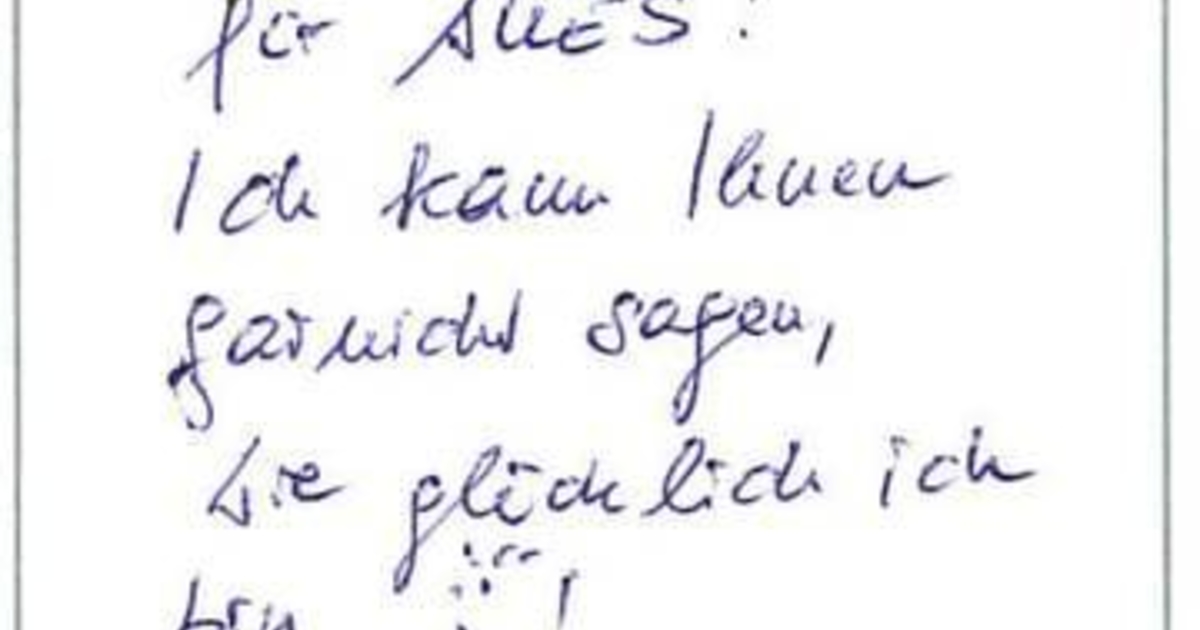 für ALLES!
Ich kann Ihnen
garnicht sagen,
wie glücklich ich
bin !